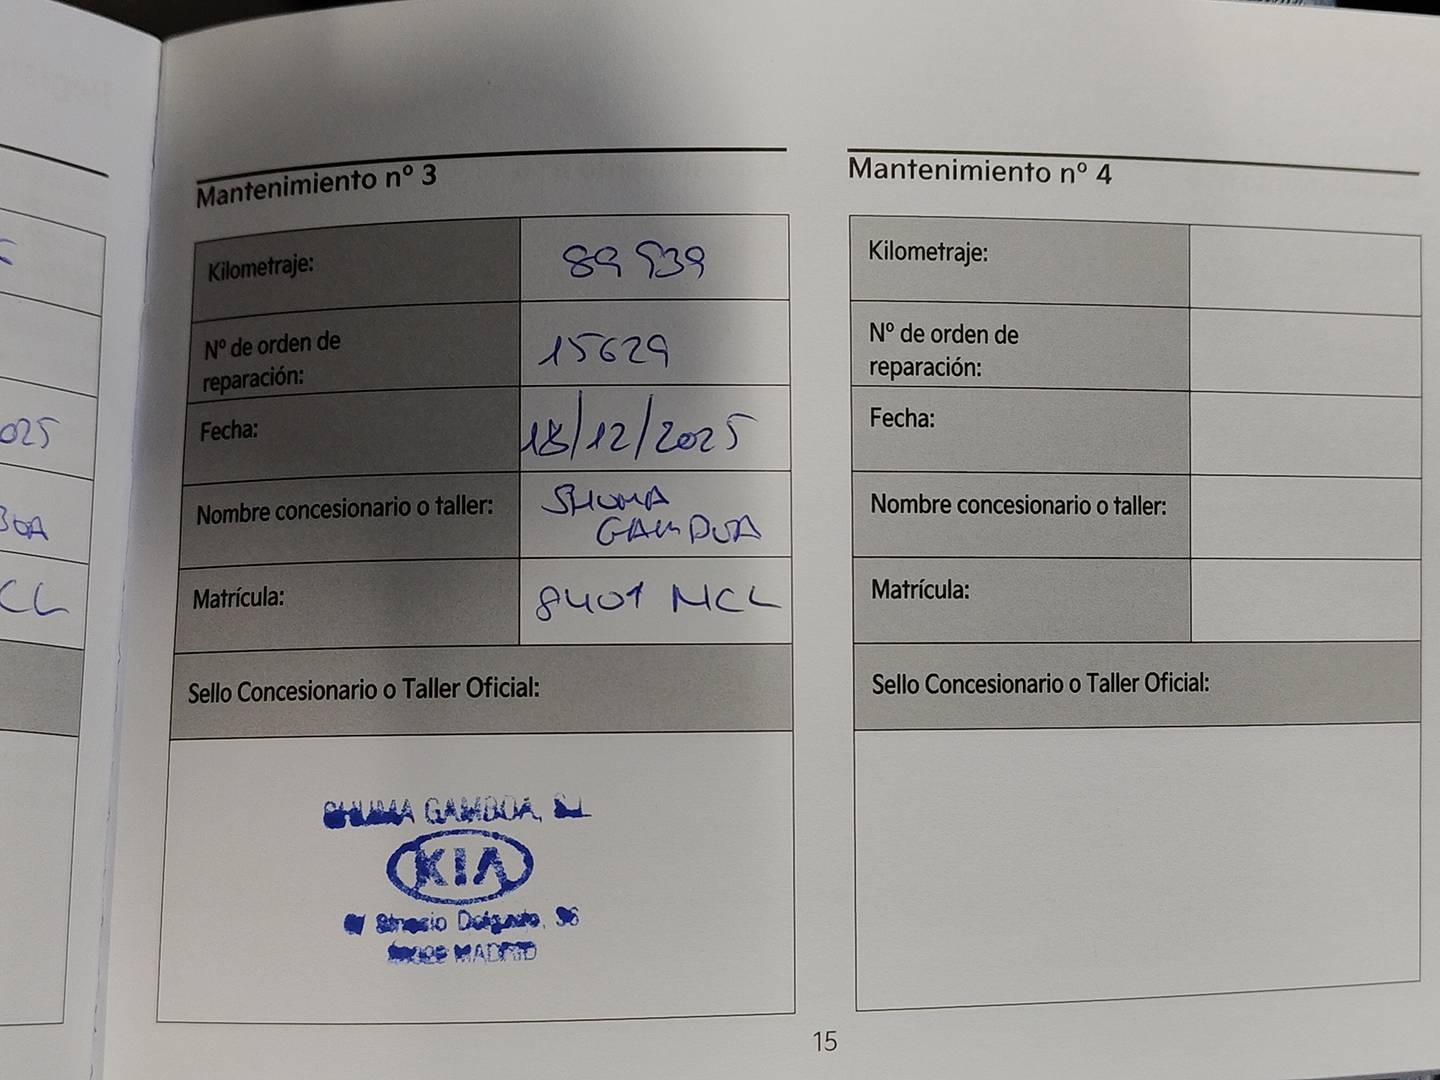 025
CL
Mantenimiento nº 3
Kilometraje: 89 939
Nº de orden de
reparación: 15629
Fecha: 18/12/2025
Nombre concesionario o taller: SHUMA
GAMBOA
Matrícula: 8401 MCL
Sello Concesionario o Taller Oficial:
SHUMA GAMBOA, SL
KIA
MADRID
Mantenimiento nº 4
Kilometraje:
Nº de orden de
reparación:
Fecha:
Nombre concesionario o taller:
Matrícula:
Sello Concesionario o Taller Oficial:
15